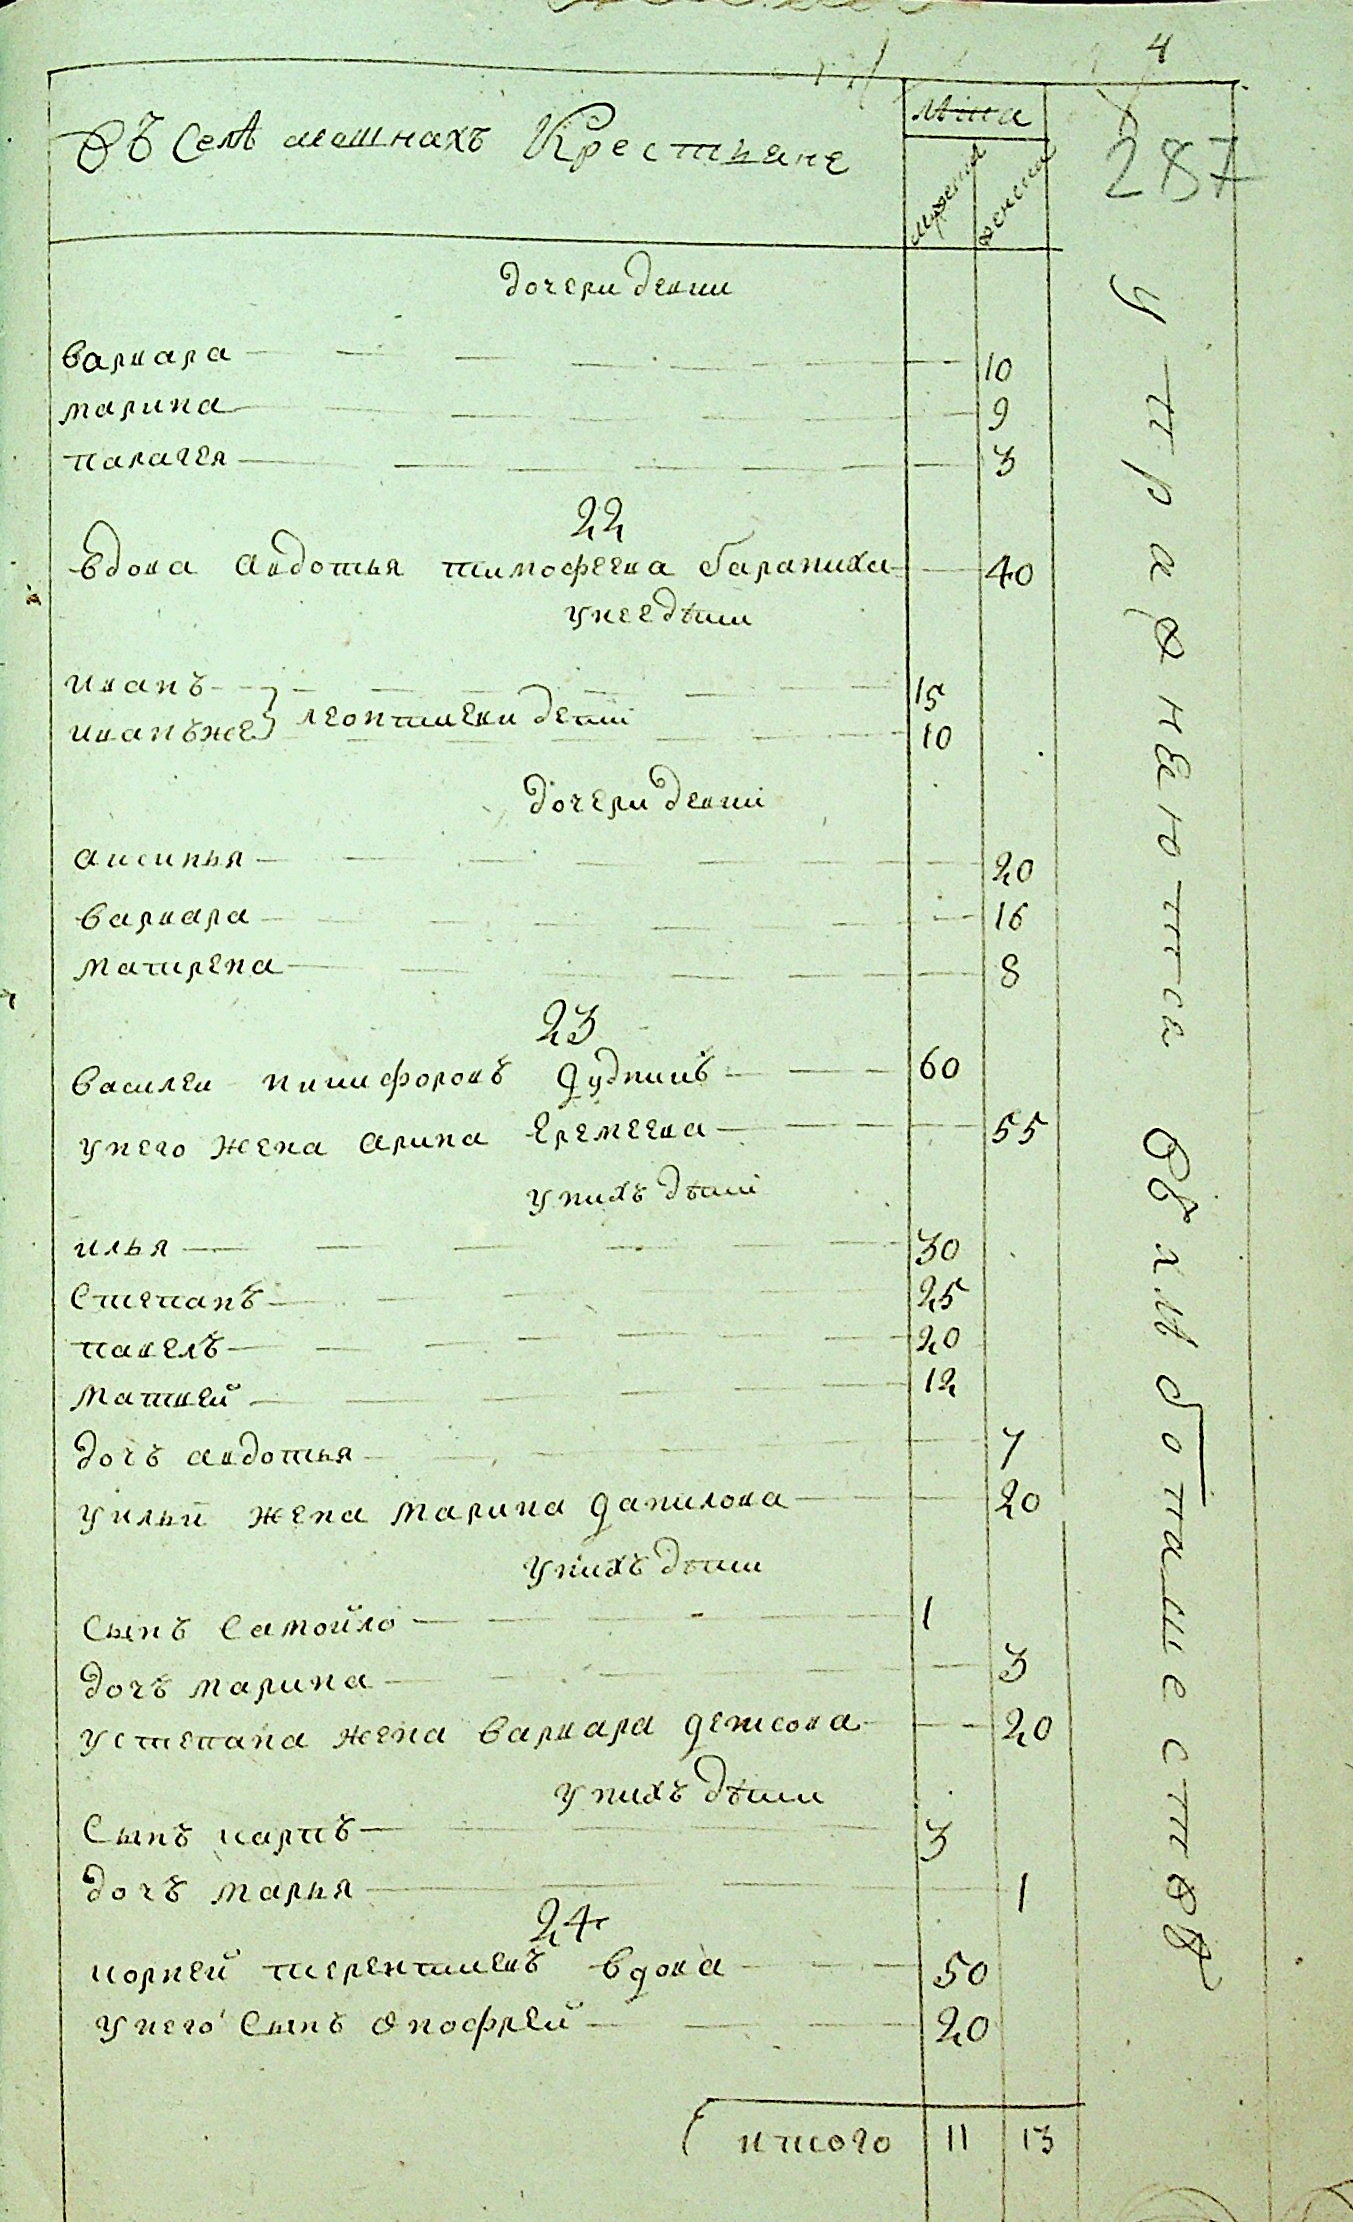 4
287
Въ Селѣ мошнахъ Крестьяне
Лѣта
мужеска
женска
дочери девки
варвара 10
марина 9
палагея 3
22
вдова авдотья тимофеева бараниха 40
у нее дѣти
иванъ 15
леонтиевы дети
иванъ же 10
дочери девки
аксинья 20
варвара 16
матирена 8
23
василеи никифоровъ дудникъ 60
у него жена арина Еремеева 55
у нихъ дѣти
илья 30
Степанъ 25
павелъ 20
матвей 12
дочъ авдотья 7
у ильи жена марина данилова 20
у нихъ дѣти
Сынъ Самойло 1
дочъ марина 3
у степана жена варвара денсова 20
у нихъ дѣти
Сынъ карпъ 3
дочъ марья 1
24
корней терентиевъ вдова 50
у него Сынъ онофрей 20
итого 11 13
упражненютса в хлѣбопашествѣ